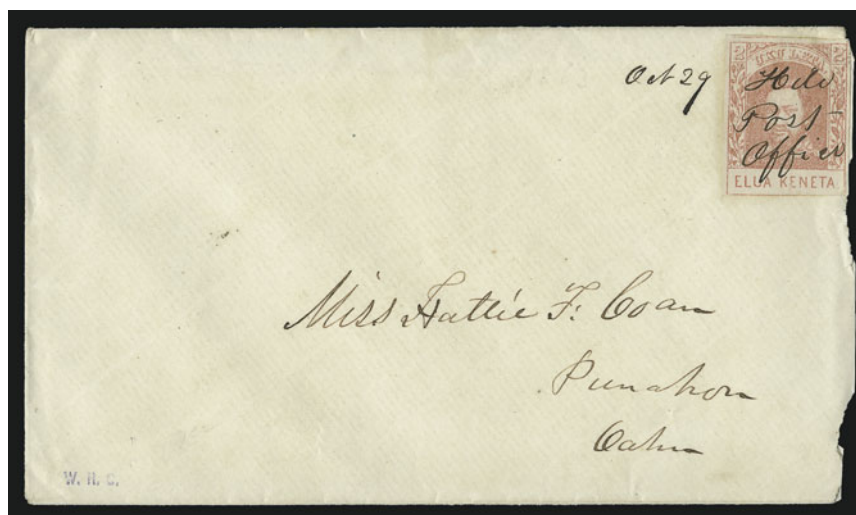 Oct 29 Hilo
Post
Office
ELUA KENETA
Miss Hattie F. Coan
Punahou
Oahu
W. R. C.